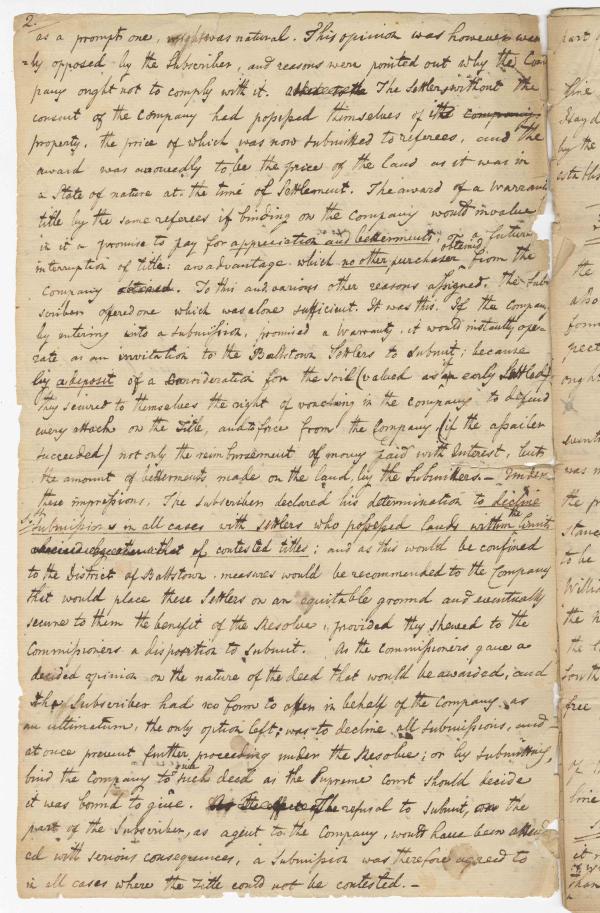 2.
as a prompt one, was natural. This opinion was however
-ly opposed by the Subscriber, and reasons were pointed out why the Com
pany ought not to comply with it. The Settlers without the
consent of the Company had possessed themselves of
property, the price of which was now submitted to referees, and the
award was avowedly to be the price of the land as it was in
a State of nature at the time of Settlement. The award of a Warrant
title by the same referees if binding on the Company would involve
in it a promise to pay for appreciation and betterments on a future
interruption of title: an advantage which no other purchaser obtained from the
Company. To this and various other reasons assigned. The Sub
scriber offered one which was alone sufficient. It was this. If the Company
by entering into a submission, promised a Warranty, it would instantly ope-
rate as an invitation to the Ballstown Settlers to submit; because
by a deposit of a consideration for the soil (valued as if an early Settled)
they secured to themselves the right of vouching in the Company to defend
every attack on the Title, and to force from the Company (if the assailer
succeeded) not only the reimbursement of money paid with Interest, but
the amount of betterments made on the land, by the Submitters. - Under
these impressions, The subscriber declared his determination to decline
submissions in all cases with settlers who possessed lands within the limits
of contested titles; and as this would be confined
to the District of Ballstown, measures would be recommended to the Company
that would place these Settlers on an equitable ground and eventually
secure to them the benefit of the Resolve, provided they shewed to the
Commissioners a disposition to submit. As the Commissioners gave a
decided opinion on the nature of the deed that would be awarded, and
the Subscriber had no form to offer in behalf of the Company as
an ultimatum, the only option left, was to decline all submissions, and
at once prevent further proceeding under the Resolve; or by submitting,
bind the Company to such deed as the Supreme Court should decide
it was bound to give. refusal to submit, on the
part of the Subscriber, as agent to the Company, would have been attend
ed with serious consequences, a Submission was therefore agreed to
in all cases where the Title could not be contested. -